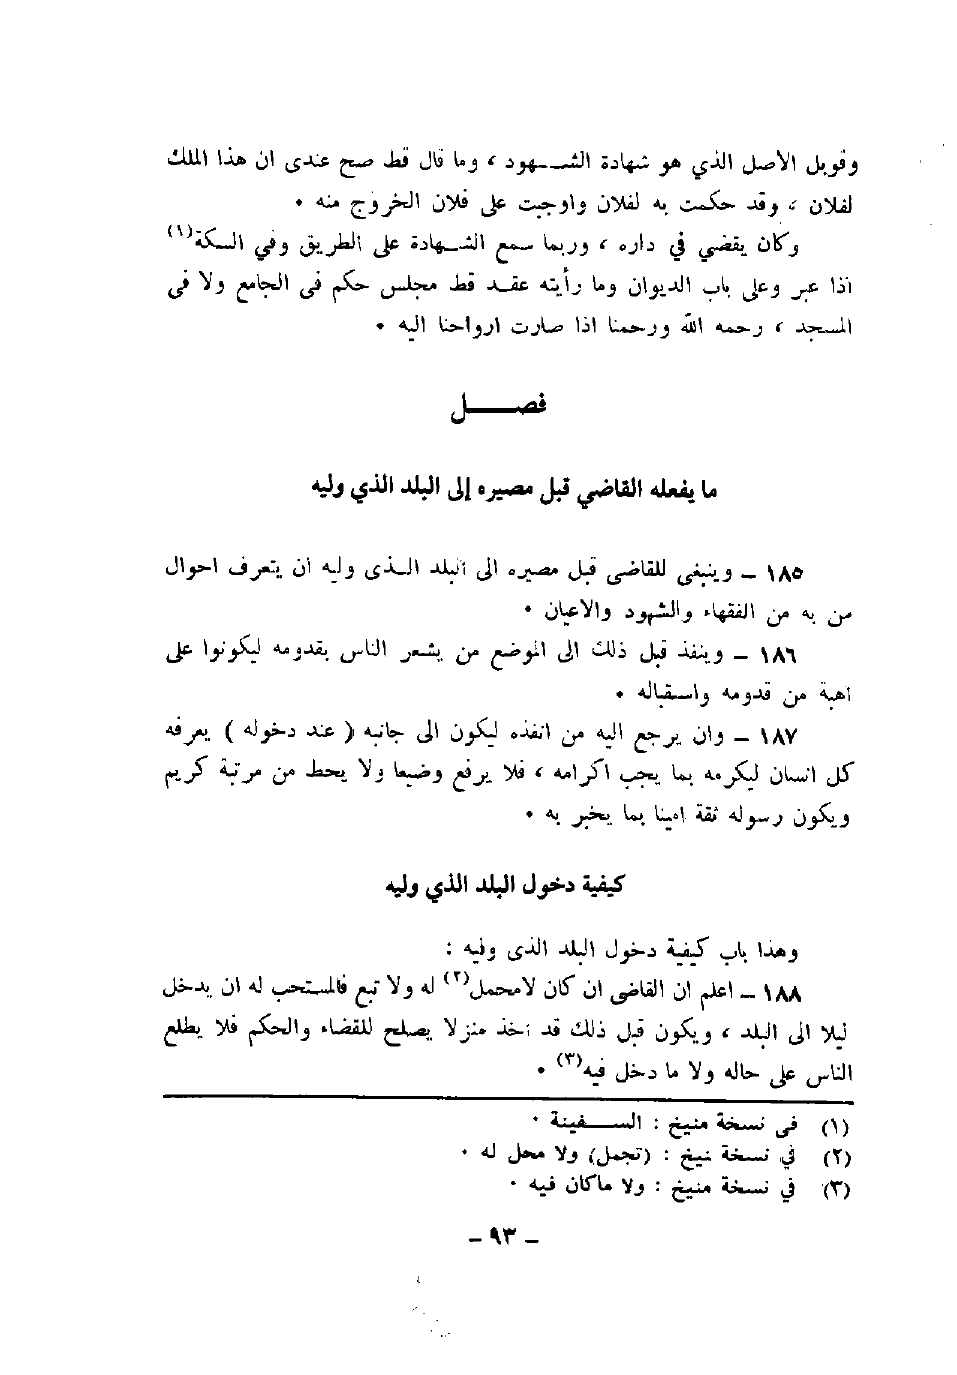 وقوبل الاصل الذي هو شهادة الشـــهود ، وما قال قط صح عندى ان هذا الملك
لفلان ، وقد حكمت به لفلان واوجبت على فلان الخروج منه ٠
وكان يقضي في داره ، وربما سمع الشـهادة على الطريق وفي السكة(١)
اذا عبر وعلى باب الديوان وما رأيته عقـد قط مجلس حكم فى الجامع ولا فى
المسجد ، رحمه الله ورحمنا اذا صارت ارواحنا اليه ٠
فصـــــل
ما يفعله القاضي قبل مصيره إلى البلد الذي وليه
١٨٥ – وينبغى للقاضى قبل مصيره الى البلد الـذى وليه ان يتعرف احوال
من به من الفقهاء والشهود والاعيان ٠
١٨٦ – وينفذ قبل ذلك الى الموضع من يشعر الناس بقدومه ليكونوا على
اهبة من قدومه واستقباله ٠
١٨٧ – وان يرجع اليه من انفذه ليكون الى جانبه ( عند دخوله ) يعرفه
كل انسان ليكرمه بما يجب اكرامه ، فلا يرفع وضيعا ولا يحط من مرتبة كريم
ويكون رسوله ثقة امينا بما يخبر به ٠
كيفية دخول البلد الذي وليه
وهذا باب كيفية دخول البلد الذى وليه :
١٨٨ – اعلم ان القاضى ان كان لامحمل(٢) له ولا تبع فالمستحب له ان يدخل
ليلا الى البلد ، ويكون قبل ذلك قد اخذ منزلا يصلح للقضاء والحكم فلا يطلع
الناس على حاله ولا ما دخل فيه(٣) ٠
(١) فى نسخة منيخ : الســـفينة ٠
(٢) في نسخة نيخ : (تجمل) ولا محل له ٠
(٣) في نسخة منيخ : ولا ماكان فيه ٠
– ٩٣ –